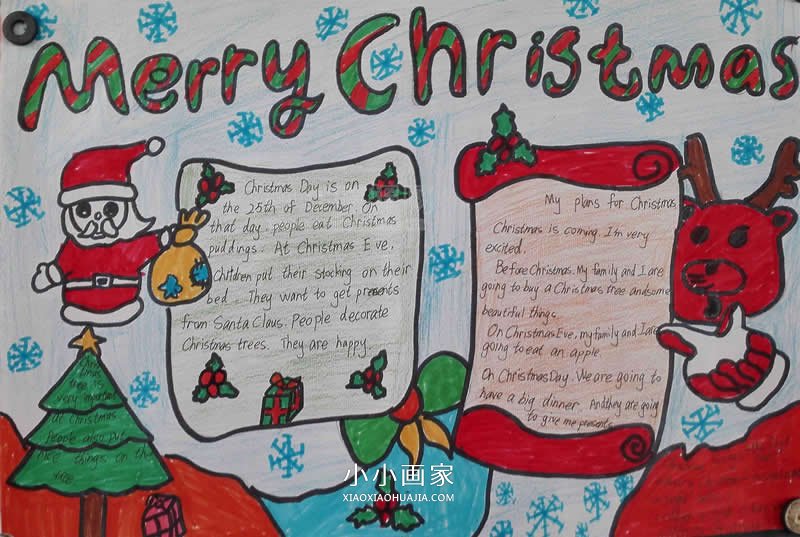 Merry Christmas
Christmas Day is on
the 25th of December. On
that day. people eat Christmas
puddings. At Christmas Eve,
Children put their stocking on their
bed. They want to get presents
from Santa Claus. People decorate
Christmas trees. They are happy.
My plans for Christmas
Christmas is coming. I'm very
excited.
Before Christmas. My family and I are
going to buy a Christmas tree and some
beautiful things.
On Christmas Eve, my family and I are
going to eat an apple.
On Christmas Day. We are going to
have a big dinner. And they are going
to give me presents
tree is
very important
at Christmas.
People also put
nice things on the
tree
小小画家
XIAOXIAOHUAJIA.COM